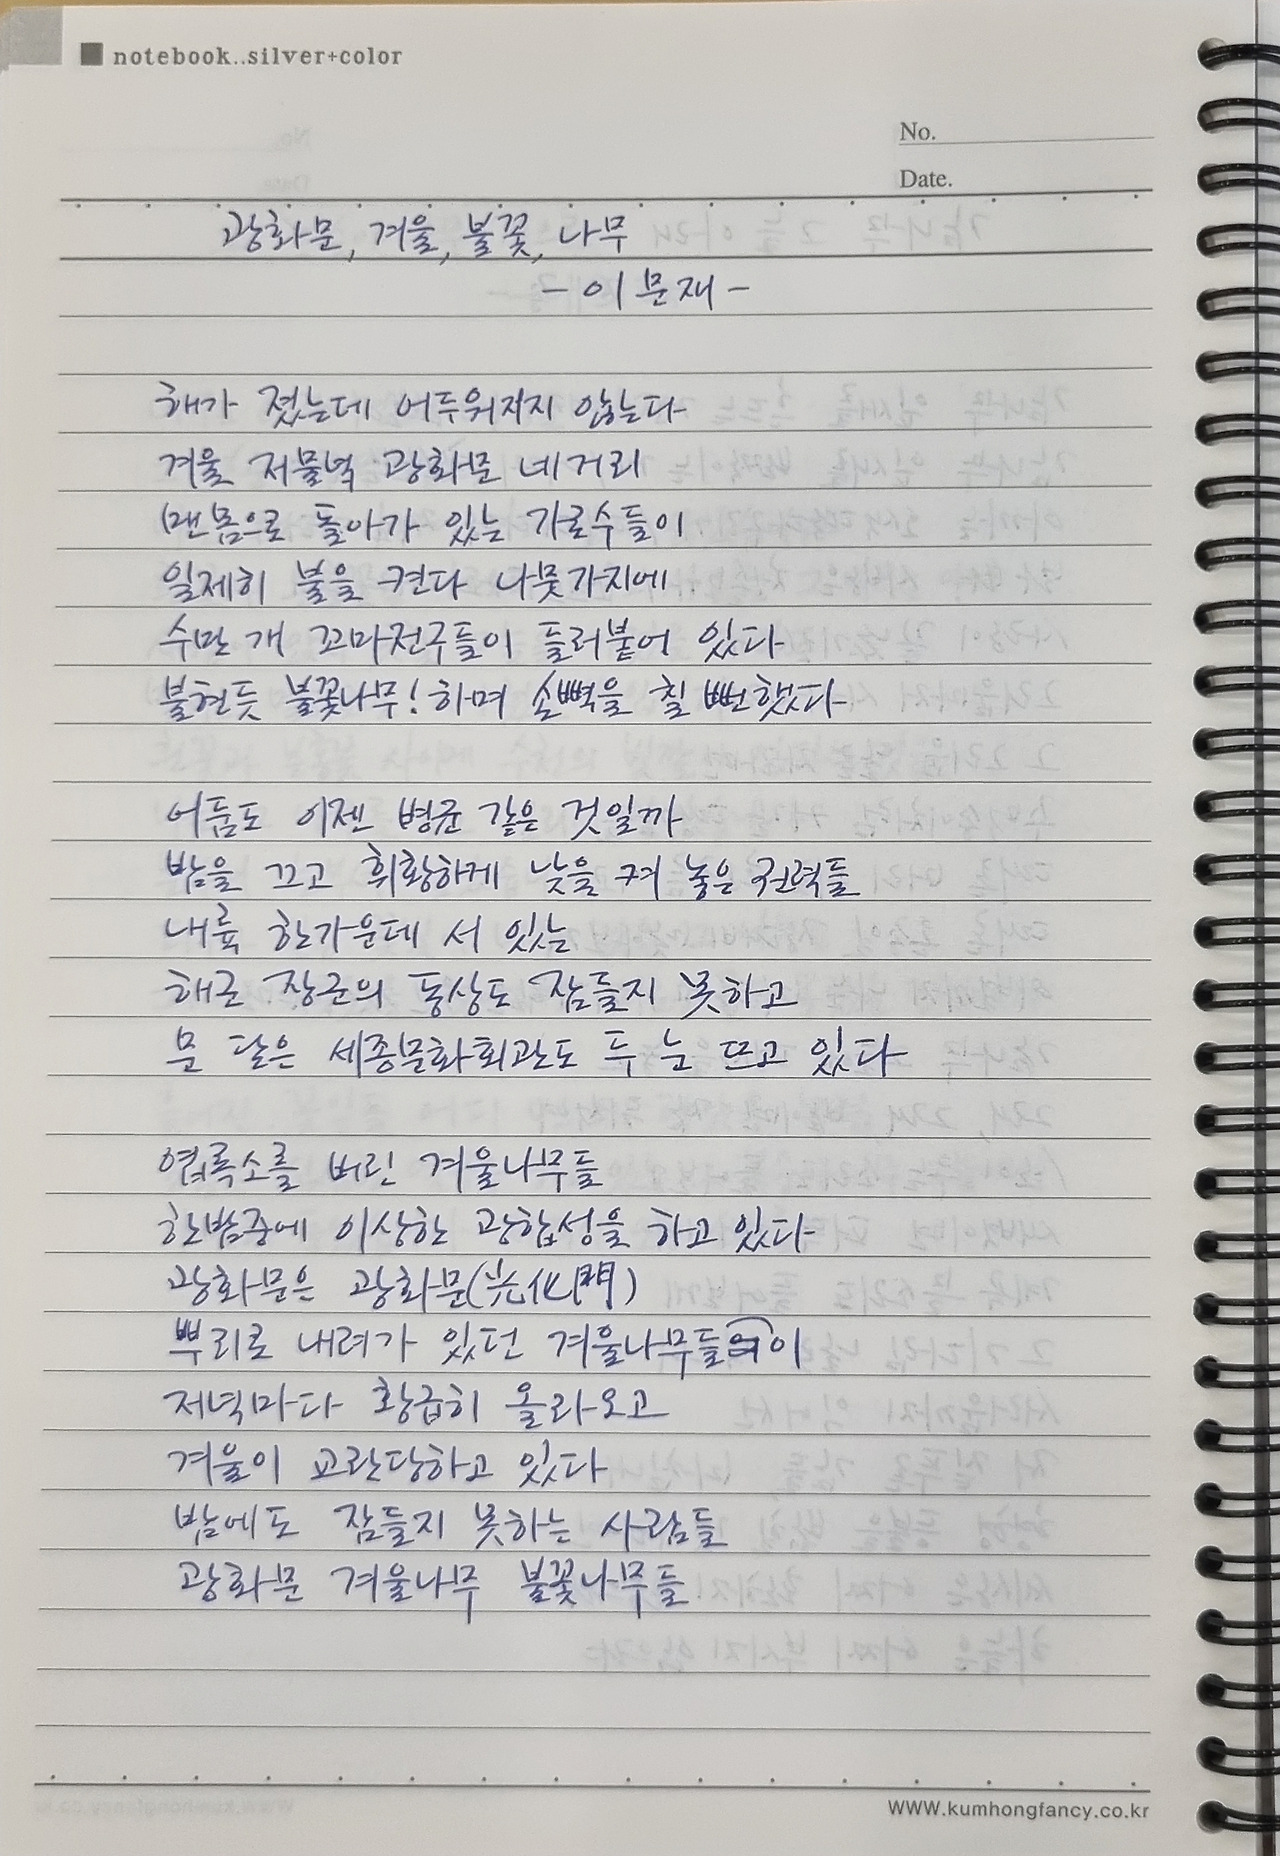 notebook..silver+color
No.
Date.
광화문, 겨울, 불꽃, 나무
- 이문재 -
해가 졌는데 어두워지지 않는다
겨울 저물녘 광화문 네거리
맨몸으로 돌아가 있는 가로수들이
일제히 불을 켠다 나뭇가지에
수만 개 꼬마전구들이 들러붙어 있다
불현듯 불꽃나무! 하며 손뼉을 칠 뻔했다
어둠도 이젠 병균 같은 것일까
밤을 끄고 휘황하게 낮을 켜 놓은 권력들
내륙 한가운데 서 있는
해군 장군의 동상도 잠들지 못하고
문 닫은 세종문화회관도 두 눈 뜨고 있다
엽록소를 버린 겨울나무들
한밤중에 이상한 광합성을 하고 있다
광화문은 광화문(光化門)
뿌리로 내려가 있던 겨울나무들이
저녁마다 황급히 올라오고
겨울이 교란당하고 있다
밤에도 잠들지 못하는 사람들
광화문 겨울나무 불꽃나무들
WWW.kumhongfancy.co.kr